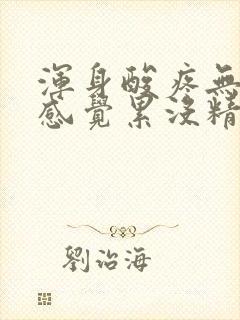 渾身酸疼無
感覺累沒精
劉治海